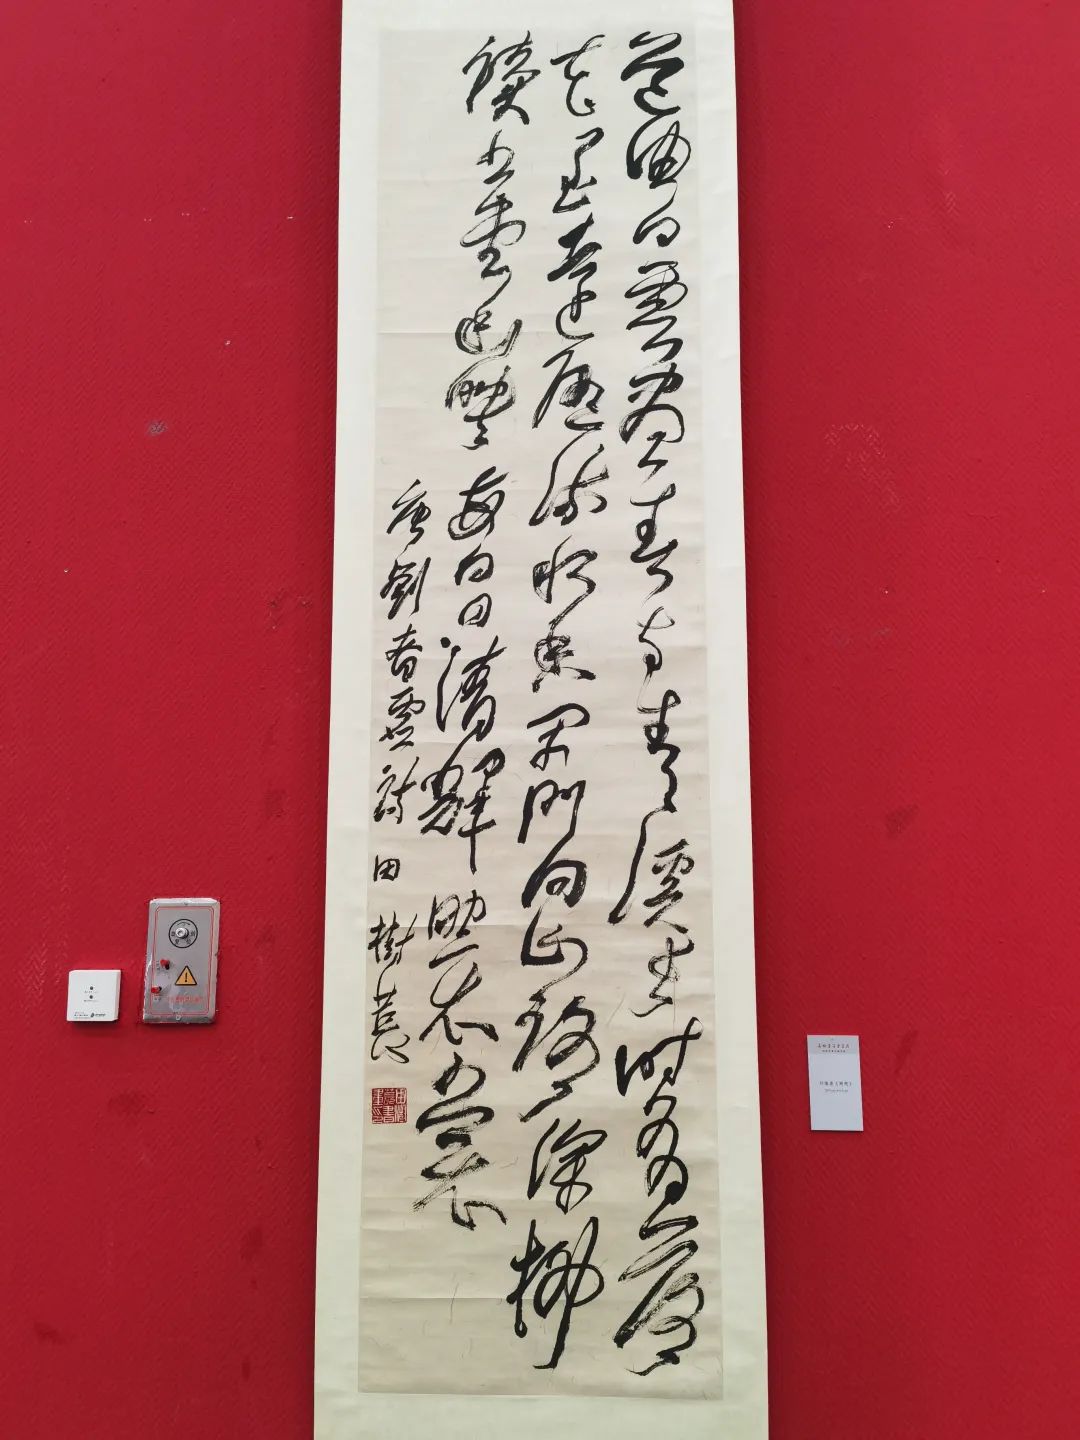 道由白雲盡春与青溪長時有落
花至遠随流水香閑門向山路深柳
讀書堂幽映每白日清輝照衣裳
唐劉昚虛詩 田樹萇